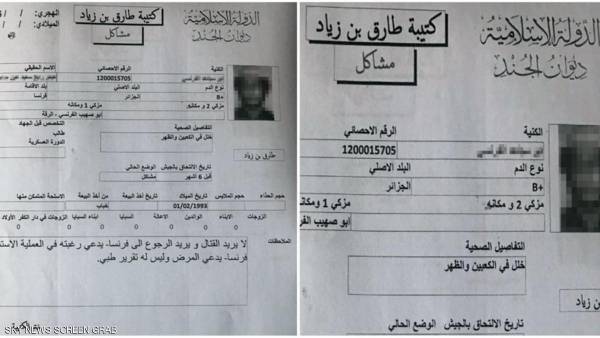 الهجري: / /
الميلادي: / /
كتيبة طارق بن زياد
مشاكل
الدولة الإسلامية
ديوان الجند
الاسم الحقيقي
الرقم الاحصائي
الكنية
1200015705
بلد الاقامة
البلد الاصلي
نوع الدم
فرنسا
الجزائر
B+
مزكي 1 ومكانه
مزكي 2 و مكانه
ابو صهيب الفرنسي - الرقة
التخصص قبل الجهاد
التفاصيل الصحية
طالب
خلل في الكعبين والظهر
الدورة العسكرية
تاريخ الالتحاق بالجيش
الوضع الحالي
طارق بن زياد
قبل 6 اشهر
مشاكل
حجم الحذاء
حجم الملابس
تاريخ الميلاد
تاريخ أخذ البيعة
من أخذ البيعة
الاسلحة المتمكن منها
01/02/1993
خباب
الزوجات
الابناء
الوالدين
الاعالة
السبايا
ابناء السبايا
الزوجات في دار الكفر
الأولاد
0 0 0 0 0 0
الملاحظات
لا يريد القتال و يريد الرجوع الى فرنسا- يدعي رغبته في العملية
فرنسا- يدعي المرض وليس له تقرير طبي.
SKY NEWS SCREEN GRAB
كتيبة طارق بن زياد
مشاكل
الدولة الإسلامية
ديوان الجند
الرقم الاحصائي
الكنية
1200015705
البلد الاصلي
نوع الدم
الجزائر
B+
مزكي 1 ومكانه
مزكي 2 و مكانه
ابو صهيب
التفاصيل الصحية
خلل في الكعبين والظهر
بن زياد
تاريخ الالتحاق بالجيش
الوضع الحالي